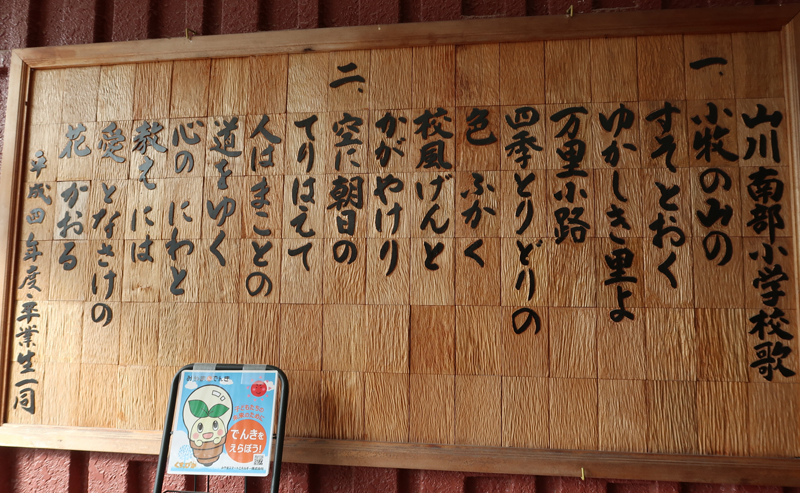 山川南部小学校歌
一、
小牧の山の
すそとおく
ゆかしき里よ
万里小路
四季とりどりの
色ふかく
校風げんと
かがやけり
二、
空に朝日の
てりはえて
人はまことの
道をゆく
心のにわと
教えには
愛となさけの
花かおる
平成四年度・卒業生一同
でんきを
えらぼう!